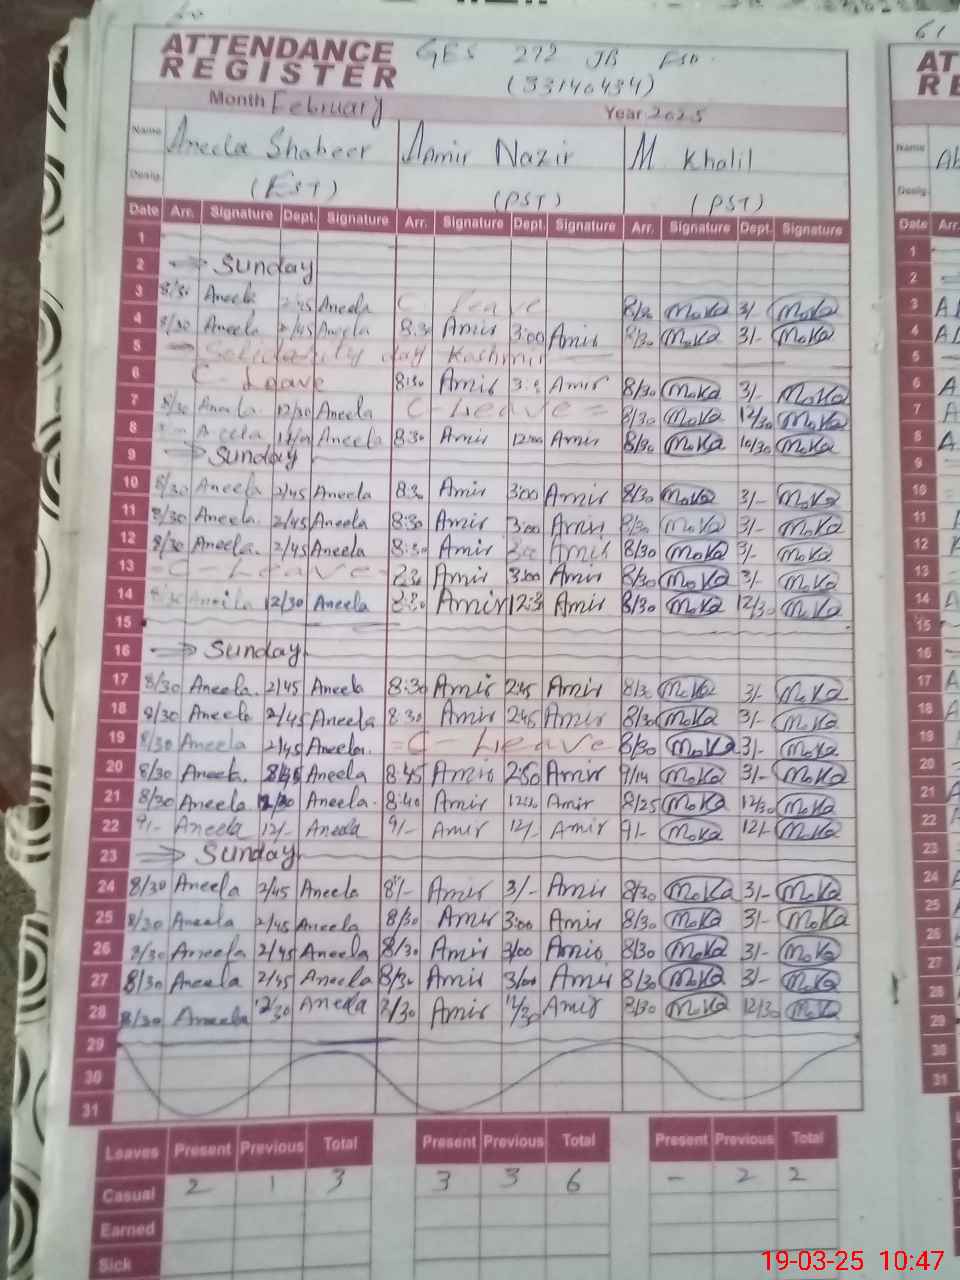 ATTENDANCE REGISTER GES 272 JB FSD
(33140434)
Month February Year 2025
Name Aneela Shabeer Aamir Nazir M Khalil
Desig. (EST) (PST) (PST)
Date Arr. Signature Dept. Signature Arr. Signature Dept. Signature Arr. Signature Dept. Signature
1
2 Sunday
3 8/30 Aneela 2/45 Aneela C leave 8/30 MoKa 3/- MoKa
4 8/30 Aneela 2/45 Aneela 8:30 Amir 3:00 Amir 8/30 MoKa 3/- MoKa
5 Solidarity day Kashmir
6 C- Leave 8:30 Amir Amir 8/30 MoKa 3/- MoKa
7 8/30 Aneela 12/30 Aneela C-Leave 8/30 MoKa 12/30 MoKa
8 Aneela Aneela 8:30 Amir 12:00 Amir 8/30 MoKa 10/30 MoKa
9 Sunday
10 8/30 Aneela 2/45 Aneela 8:30 Amir 3:00 Amir 8/30 MoKa 3/- MoKa
11 8/30 Aneela. 2/45 Aneela 8:30 Amir 3:00 Amir 8/30 MoKa 3/- MoKa
12 8/30 Aneela. 2/45 Aneela 8:30 Amir Amir 8/30 MoKa 3/- MoKa
13 C- Leave- Amir 3:00 Amir 8/30 MoKa 3/- MoKa
14 Aneela 12/30 Aneela 8:30 Amir 12:30 Amir 8/30 MoKa 12/30 MoKa
15
16 Sunday
17 8/30 Aneela. 2/45 Aneela 8:30 Amir 2:45 Amir 8/30 MoKa 3/- MoKa
18 8/30 Aneela 2/45 Aneela 8:30 Amir 2:45 Amir 8/30 MoKa 3/- MoKa
19 8/30 Aneela 2/45 Aneela. C- Leave 8/30 MoKa 3/- MoKa
20 8/30 Aneela. Aneela 8:45 Amir 2:50 Amir 9/14 MoKa 3/- MoKa
21 8/30 Aneela 12/30 Aneela. 8:40 Amir 12:30 Amir 8/25 MoKa 12/30 MoKa
22 9/- Aneela 12/- Aneela 9/- Amir 12/- Amir 9/- MoKa 12/- MoKa
23 Sunday
24 8/30 Aneela 2/45 Aneela 8/- Amir 3/- Amir 8/30 MoKa 3/- MoKa
25 8/30 Aneela 2/45 Aneela 8/30 Amir 3:00 Amir 8/30 MoKa 3/- MoKa
26 8/30 Aneela 2/45 Aneela 8/30 Amir 3/00 Amir 8/30 MoKa 3/- MoKa
27 8/30 Aneela 2/45 Aneela 8/30 Amir 3/00 Amir 8/30 MoKa 3/- MoKa
28 8/30 Aneela 12/30 Aneela 8/30 Amir Amir 8/30 MoKa 12/30 MoKa
29
30
31
Leaves Present Previous Total Present Previous Total Present Previous Total
Casual 2 1 3 3 3 6 - 2 2
Earned
Sick
61
Name
Desig.
Date Arr.
1
2
3
4
5
6
7
8
9
10
11
12
13
14
15
16
17
18
19
20
21
22
23
24
25
26
27
28
29
30
31
19-03-25 10:47